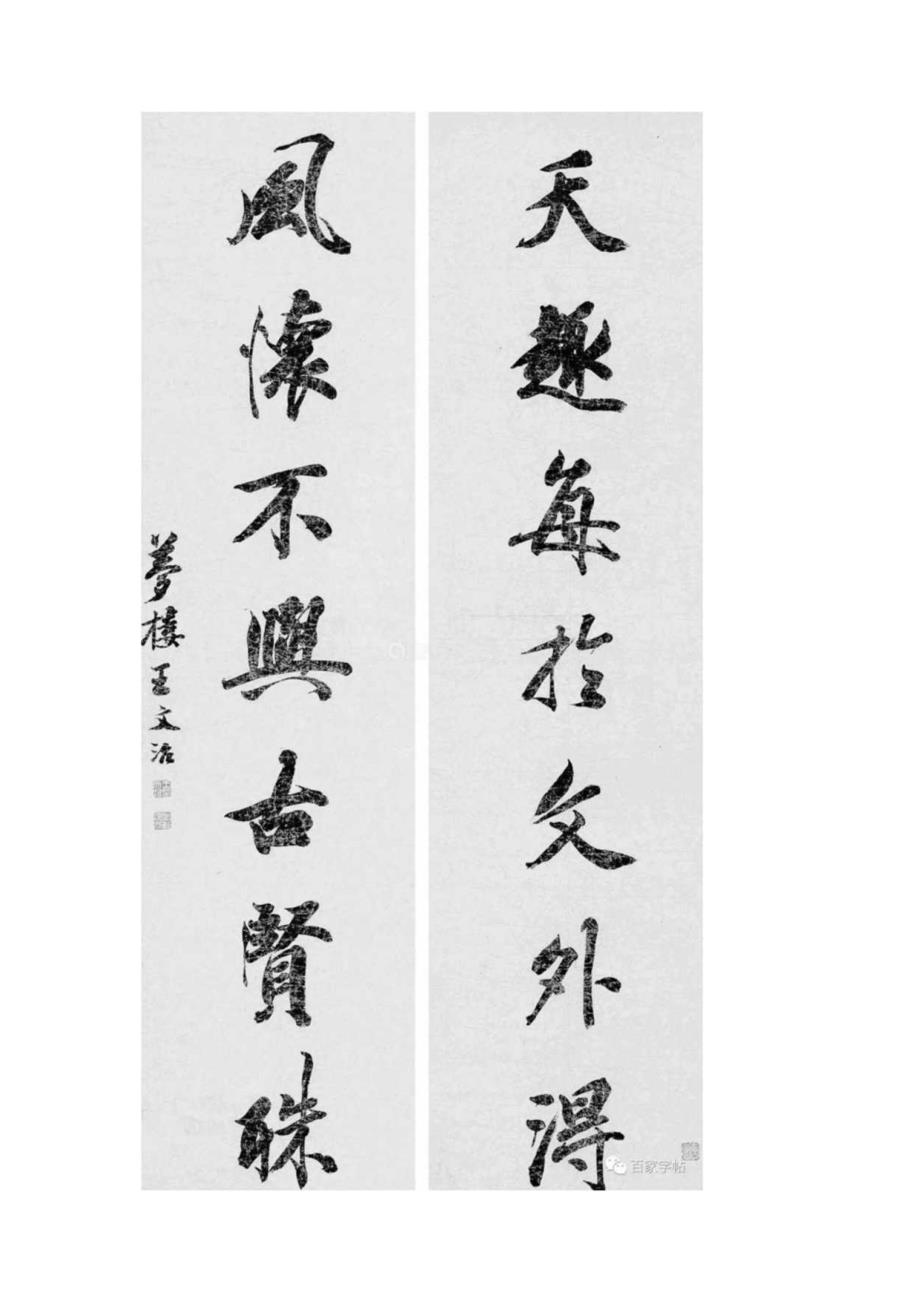 天趣每於文外得
風懷不與古賢殊
夢樓王文治
百家字帖